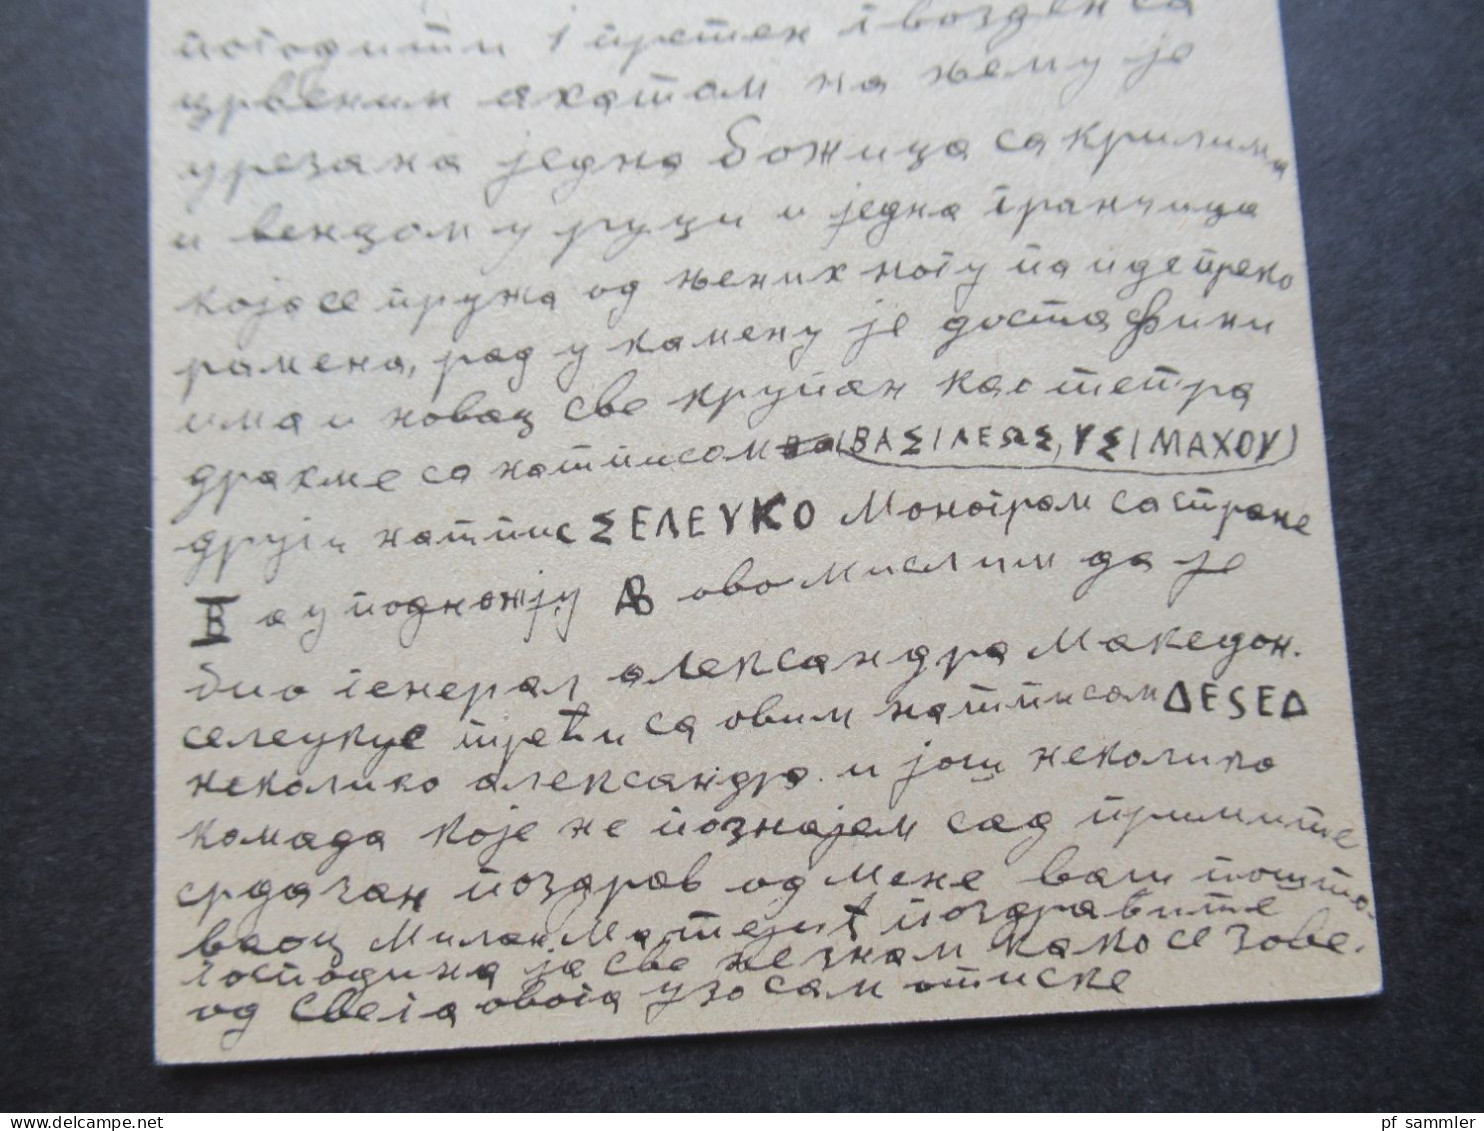 погодити 1 прстен гвозден са
црвеним ахатом на њему је
урезана једна божица са крилима
и венцом у руци и једна гранчица
која се пружа од њених ногу па иде преко
рамена, рад у камену је доста фини
има и новац све крупан као тетра
дракме са натписом (ΒΑΣΙΛΕΩΣ, ΥΣΙΜΑΧΟΥ)
други натпис ΣΕΛΕΥΚΟ Монограм са стране
B а у подножју AB ово мислим да је
био генерал александра Македон.
селеукус трећи са овим натписом ΔΕΣΕΔ
неколико александра. и још неколико
комада које не познајем сад примите
срдачан поздрав од мене ваш пошто-
ваоц Милан Матејић поздравите
господина ја све не знам како се зове.
од свега овога узо сам отиске
pf sammler